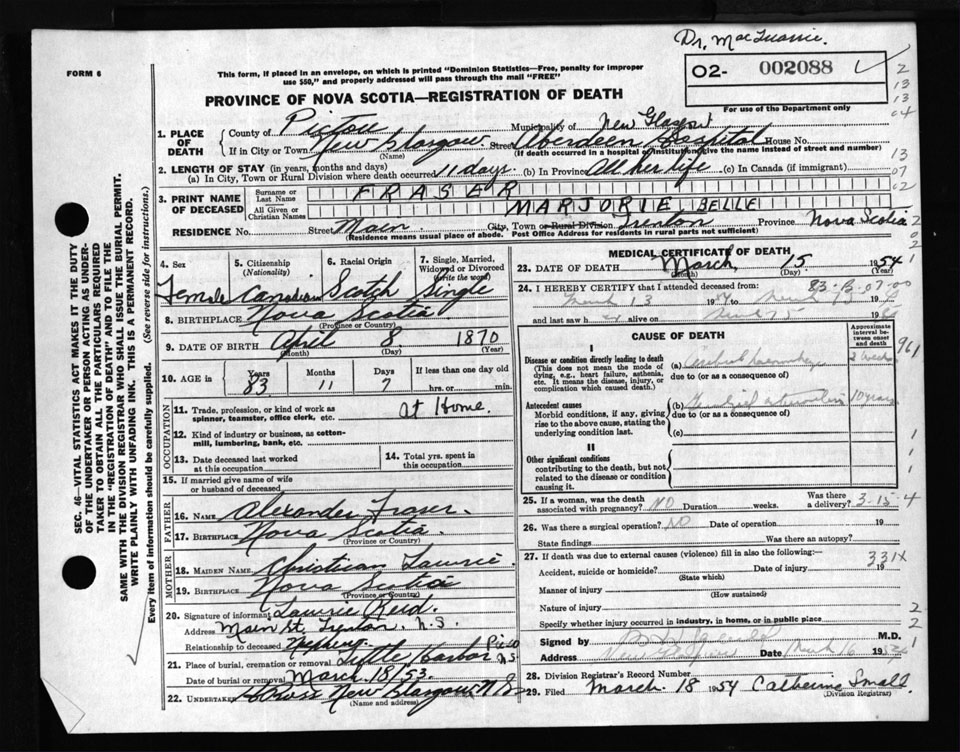 Dr. MacQuarrie.
FORM 6
This form, if placed in an envelope, on which is printed "Dominion Statistics—Free, penalty for improper
use $50," and properly addressed will pass through the mail "FREE"
02- 002088
For use of the Department only
2
13
13
04
PROVINCE OF NOVA SCOTIA—REGISTRATION OF DEATH
1. PLACE OF DEATH
County of Pictou Municipality of New Glasgow
If in City or Town New Glasgow (Name) Street Aberdeen Hospital House No.
(If death occurred in a hospital or institution give the name instead of street and number)
2. LENGTH OF STAY (in years, months and days)
(a) In City, Town or Rural Division where death occurred 11 days. (b) In Province All her life (c) In Canada (if immigrant)
13
07
02
3. PRINT NAME OF DECEASED
Surname or Last Name FRASER
All Given or Christian Names MARJORIE BELLE
RESIDENCE No. Street Main City, Town or Rural Division Trenton Province Nova Scotia
(Residence means usual place of abode. Post Office Address for residents in rural parts not sufficient)
SEC. 46—VITAL STATISTICS ACT MAKES IT THE DUTY
OF THE UNDERTAKER OR PERSON ACTING AS UNDER-
TAKER TO OBTAIN ALL THE PARTICULARS REQUIRED
IN THE "REGISTRATION OF DEATH" AND TO FILE THE
SAME WITH THE DIVISION REGISTRAR WHO SHALL ISSUE THE BURIAL PERMIT.
WRITE PLAINLY WITH UNFADING INK. THIS IS A PERMANENT RECORD.
Every item of information should be carefully supplied. (See reverse side for instructions.)
4. Sex Female
5. Citizenship (Nationality) Canadian
6. Racial Origin Scotch
7. Single, Married, Widowed or Divorced (write the word) Single
8. BIRTHPLACE Nova Scotia
(Province or Country)
9. DATE OF BIRTH April 8 1870
(Month) (Day) (Year)
10. AGE in Years 83 Months 11 Days 7 If less than one day old
hrs. or min.
OCCUPATION
11. Trade, profession, or kind of work as spinner, teamster, office clerk, etc. At Home.
12. Kind of industry or business, as cotton-mill, lumbering, bank, etc.
13. Date deceased last worked at this occupation
14. Total yrs. spent in this occupation
15. If married give name of wife or husband of deceased
FATHER
16. NAME Alexander Fraser.
17. BIRTHPLACE Nova Scotia
(Province or Country)
MOTHER
18. MAIDEN NAME Christian Lawrie
19. BIRTHPLACE Nova Scotia
(Province or Country)
20. Signature of informant Lawrie Reid.
Address Main St. Trenton. N.S.
Relationship to deceased Nephew.
21. Place of burial, cremation or removal Little Harbor
Date of burial or removal March. 18/53.
22. UNDERTAKER New Glasgow N.S
(Name and address)
MEDICAL CERTIFICATE OF DEATH
23. DATE OF DEATH March, 15 1954
(Month) (Day) (Year)
83-B-07-00
24. I HEREBY CERTIFY that I attended deceased from:
March 13 19
and last saw h alive on 19
CAUSE OF DEATH
Approximate interval between onset and death
I
Disease or condition directly leading to death
(This does not mean the mode of dying, e.g., heart failure, asthenia, etc. It means the disease, injury, or complication which caused death.)
(a) Cerebral haemorrhage 2 weeks
due to (or as a consequence of)
961
Antecedent causes
Morbid conditions, if any, giving rise to the above cause, stating the underlying condition last.
(b) 10 years
due to (or as a consequence of)
(c)
II
Other significant conditions
contributing to the death, but not related to the disease or condition causing it.
1
1
1
25. If a woman, was the death associated with pregnancy? NO Duration weeks. Was there a delivery? 3-15-4
26. Was there a surgical operation? NO Date of operation 19
State findings Was there an autopsy?
27. If death was due to external causes (violence) fill in also the following:—
Accident, suicide or homicide? Date of injury 19
(State which)
331X
Manner of injury
(How sustained)
Nature of injury
Specify whether injury occurred in industry, in home, or in public place
2
2
1
Signed by M.D.
Address New Glasgow Date March 16 1954
28. Division Registrar's Record Number
29. Filed March. 18 1954 Catherine Small
(Division Registrar)